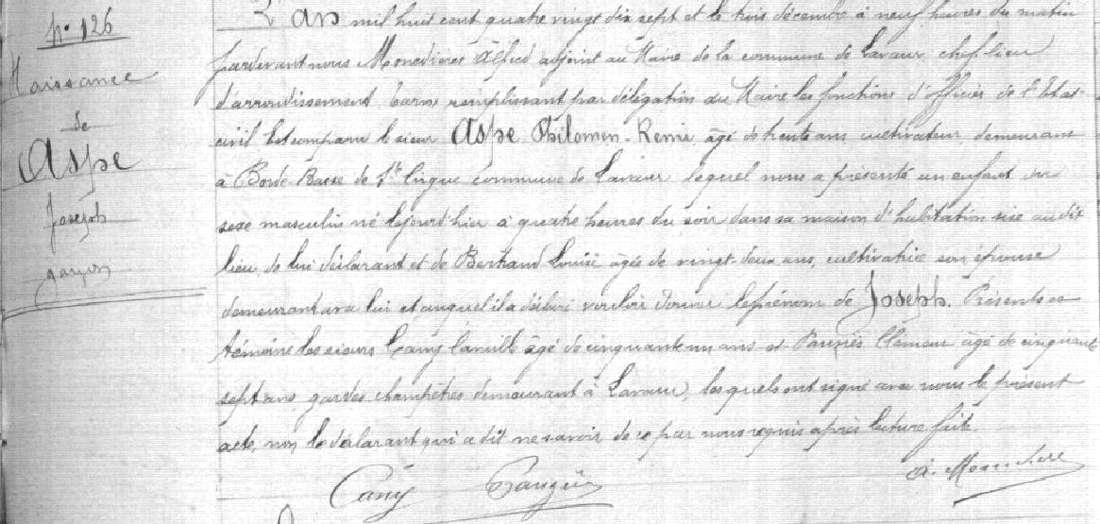 N° 126
Naissance
de
Aspe
Joseph
garçon
L'an mil huit cent quatre vingt dix sept et le trois décembre à neuf heures du matin
pardevant nous Monedières Alfred adjoint au Maire de la commune de Lavaur chef lieu
d'arrondissement, Tarn remplissant par délégation du Maire les fonctions d'officier de l'Etat
civil Est comparu le sieur Aspe Philomen-Remi âgé de trente ans cultivateur demeurant
à Borde Basse de Ste Cirgue commune de Lavaur lequel nous a présenté un enfant du
sexe masculin né le jour d'hier à quatre heures du soir dans sa maison d'habitation sise au dit
lieu, de lui déclarant et de Bertrand Louise âgée de vingt-deux ans, cultivatrice son épouse
demeurant avec lui et auquel il a déclaré vouloir donner le prénom de Joseph. Présents et
témoins les sieurs Cany âgé de cinquante un ans et âgé de cinquante
sept ans, gardes champêtres demeurant à Lavaur, lesquels ont signé avec nous le présent
acte, non le déclarant qui a dit ne savoir de ce par nous requis après lecture faite.
Cany